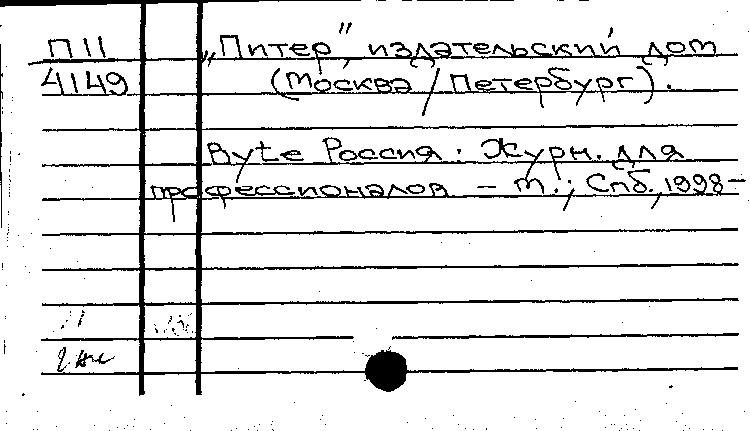 П11 „Питер", издательский дом
4149 (Москва/Петербург).
Byte Россия: Журн. для
профессионалов – М.; Спб., 1998–